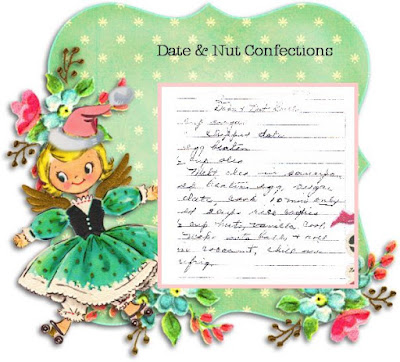 Date & Nut Confections
Date & Nut
cup sugar
chopped dates
egg beaten
cup oleo
Melt oleo in saucepan
beaten egg, sugar
dates, cook 10 min only
2 cups rice
cup nuts, vanilla cool,
into balls & roll
in coconut, chill in
refrig.